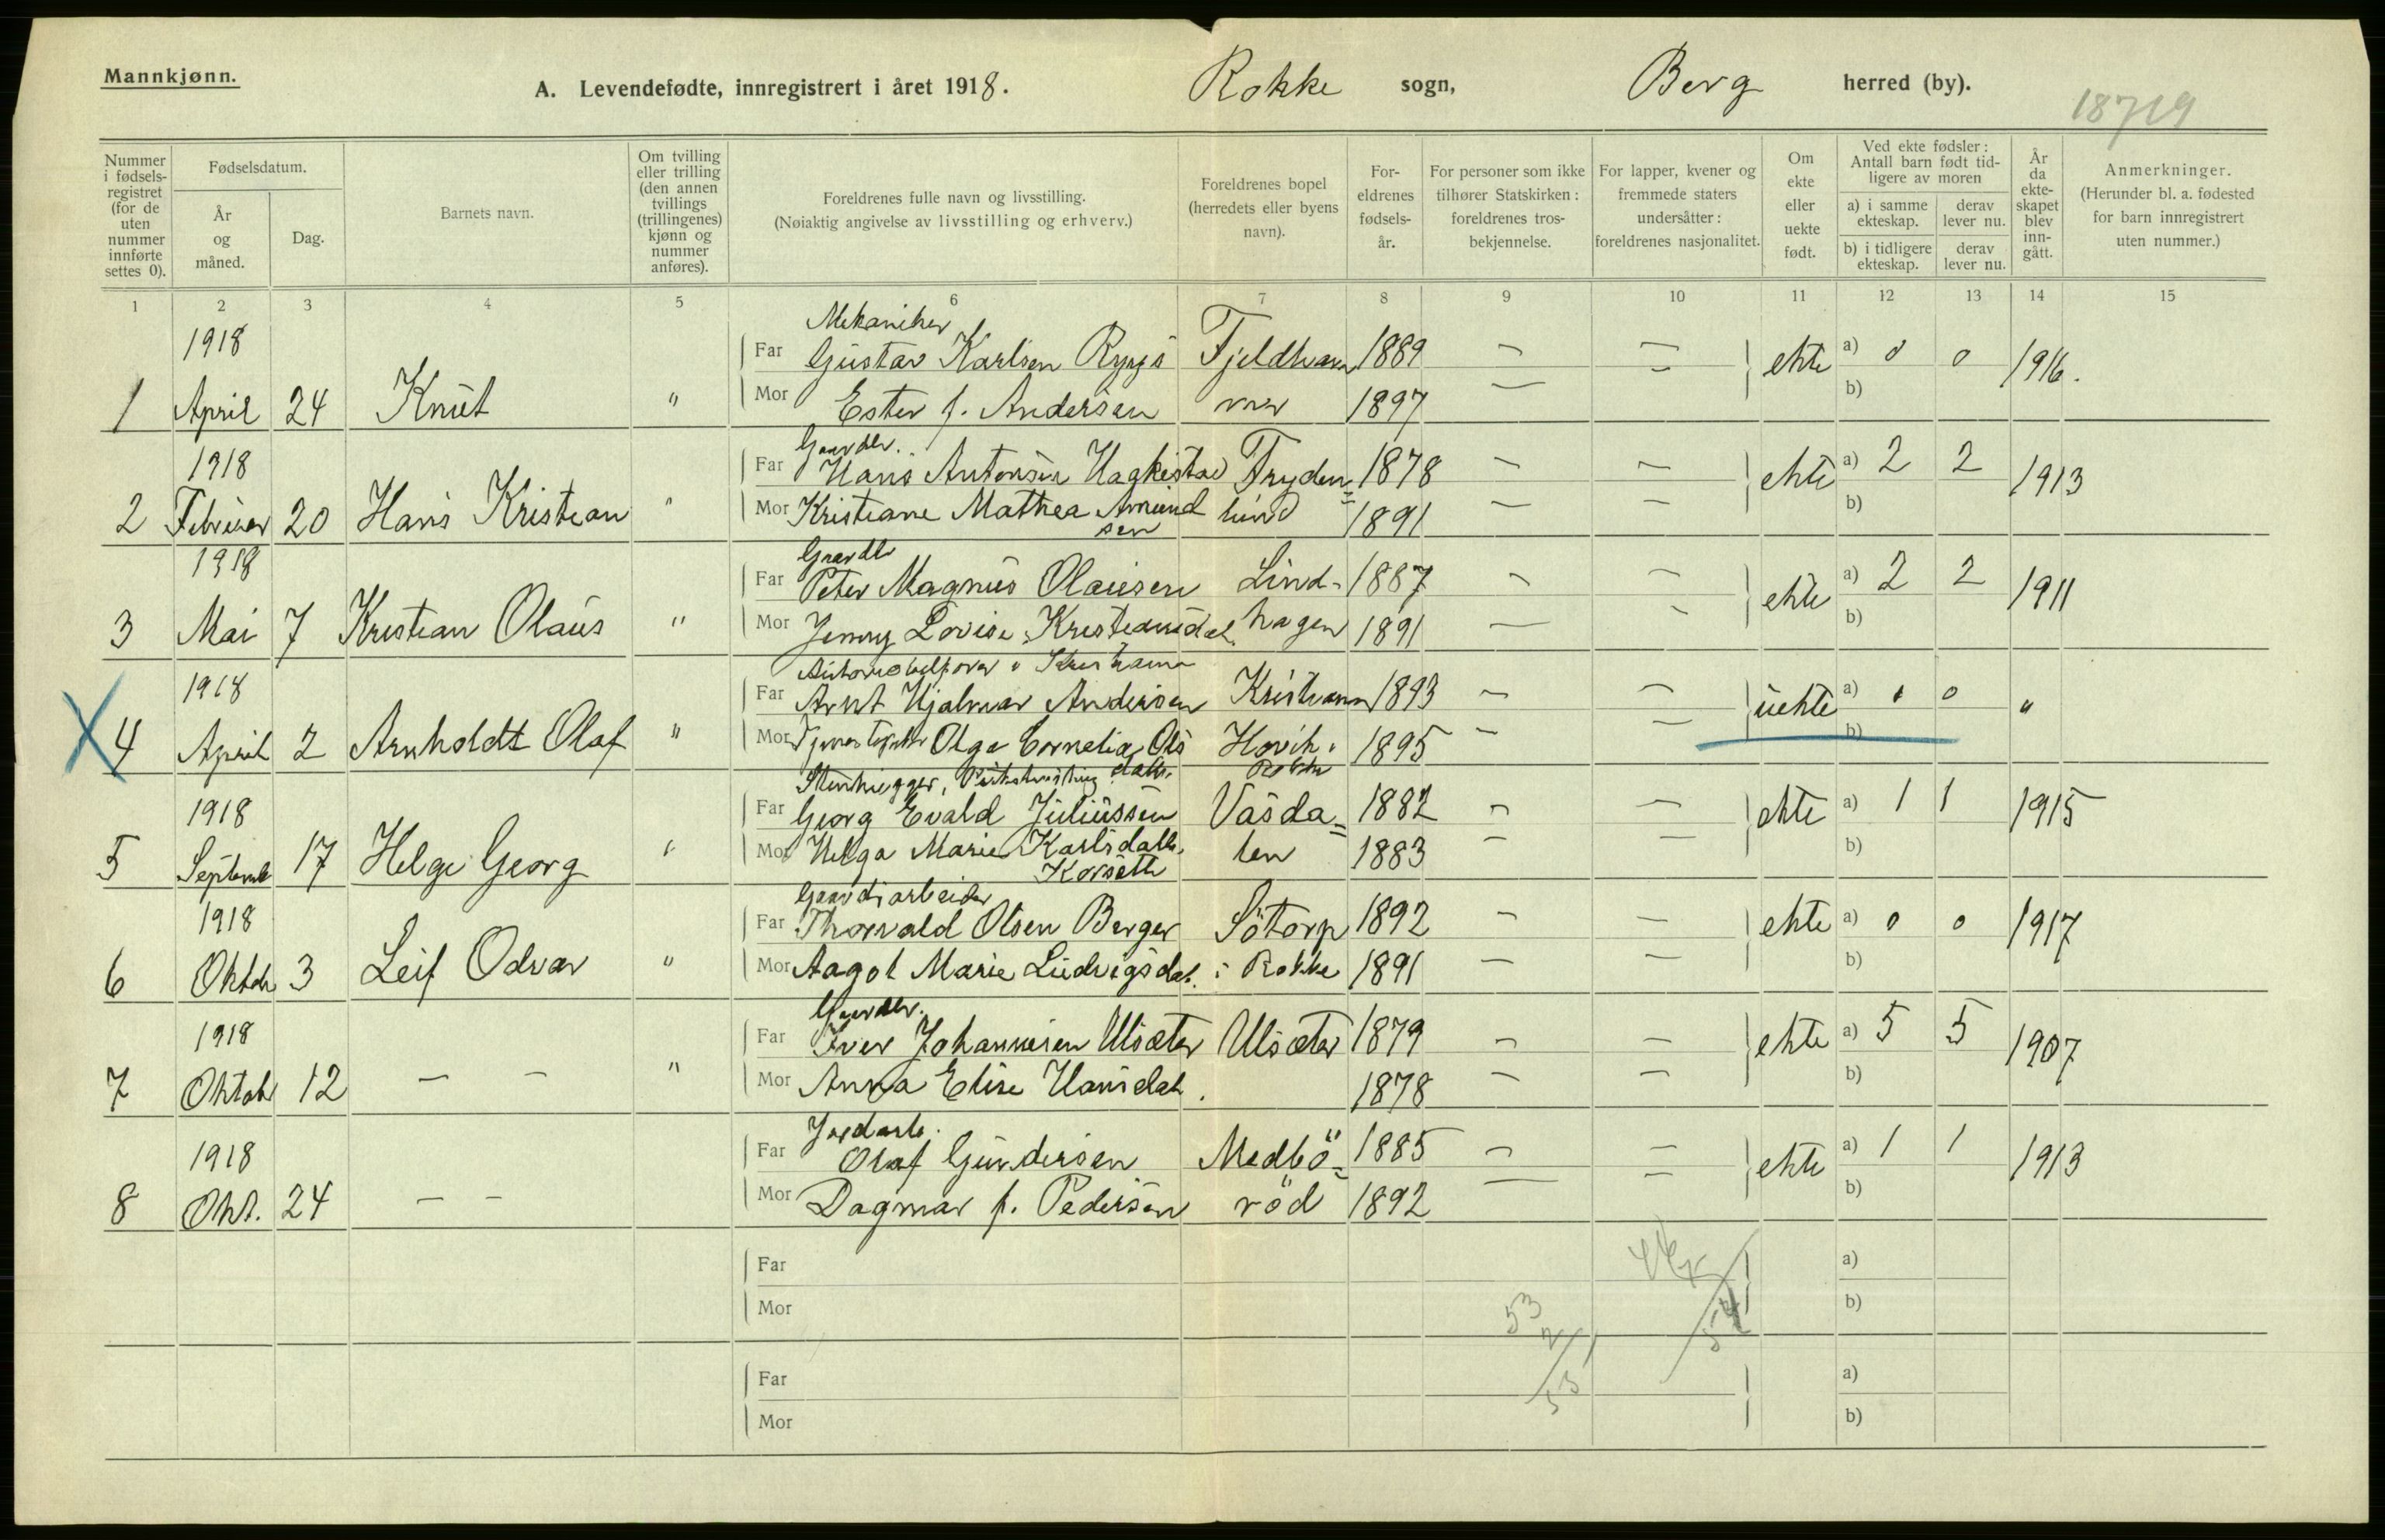 Mannkjønn.
A. Levendefødte, innregistrert i året 1918.
Rokke sogn,
Berg herred (by).
18719
Nummer i fødsels-registret (for de uten nummer innførte settes 0).
Fødselsdatum.
År og måned.
Dag.
Barnets navn.
Om tvilling eller trilling (den annen tvillings (trillingenes) kjønn og nummer anføres).
Foreldrenes fulle navn og livsstilling.
(Nøiaktig angivelse av livsstilling og erhverv.)
Foreldrenes bopel (herredets eller byens navn).
For-eldrenes fødsels-år.
For personer som ikke tilhører Statskirken: foreldrenes tros-bekjennelse.
For lapper, kvener og fremmede staters undersåtter: foreldrenes nasjonalitet.
Om ekte eller uekte født.
Ved ekte fødsler: Antall barn født tid-ligere av moren
a) i samme ekteskap.
derav lever nu.
b) i tidligere ekteskap.
derav lever nu.
År da ekte-skapet blev inn-gått.
Anmerkninger.
(Herunder bl. a. fødested for barn innregistrert uten nummer.)
1 2 3 4 5 6 7 8 9 10 11 12 13 14 15
Mekaniker
1918 Far Gustav Karlsen Fjeldhavn 1889 — — ekte a) 0 0 1916.
1 April 24 Knut " Mor Ester f. Andersen 1897 — — b)
Gaardbr.
1918 Far Hans Antonsen Fryden= 1878 — — ekte a) 2 2 1913
2 Februar 20 Hans Kristian " Mor Kristiane Mathea Amund lund 1891 — — b)
sen
Gaardbr
1918 Far Peter Magnus Olausen Lind- 1887 — — ekte a) 2 2 1911
3 Mai 7 Kristian Olaus " Mor Jenny Lovise Kristiansdat. hagen 1891 — — b)
Kristiania
1918 Far Arnt Hjalmar Andersen Kristiania 1893 — — uekte a) 0 0 "
X 4 April 2 Arnholdt Olaf " Mor Olga Cornelia Ols Hovik i 1895 — — b)
Stenhugger, datt. Rokke
1918 Far Georg Evald Juliussen Vasda= 1882 — — ekte a) 1 1 1915
5 Septemb 17 Helge Georg " Mor Helga Marie Karlsdatt. len 1883 — — b)
Korsæth
Gaardsarbeider
1918 Far Thorvald Olsen Berger Sötorp 1892 — — ekte a) 0 0 1917
6 Oktob 3 Leif Odvar " Mor Aagot Marie Ludvigsdat. i Rokke 1891 — — b)
Gaardbr.
1918 Far Iver Johannesen Ulsæter Ulsæter 1879 — — ekte a) 5 5 1907
7 Oktob 12 — — " Mor Anna Elise Hansdat. 1878 — — b)
Jordarb.
1918 Far Olaf Gundersen Medbö= 1885 — — ekte a) 1 1 1913
8 Okt. 24 — — Mor Dagmar f. Pedersen röd 1892 — — b)
Far a)
Mor 53 54 b)
2
Far 53 a)
Mor b)